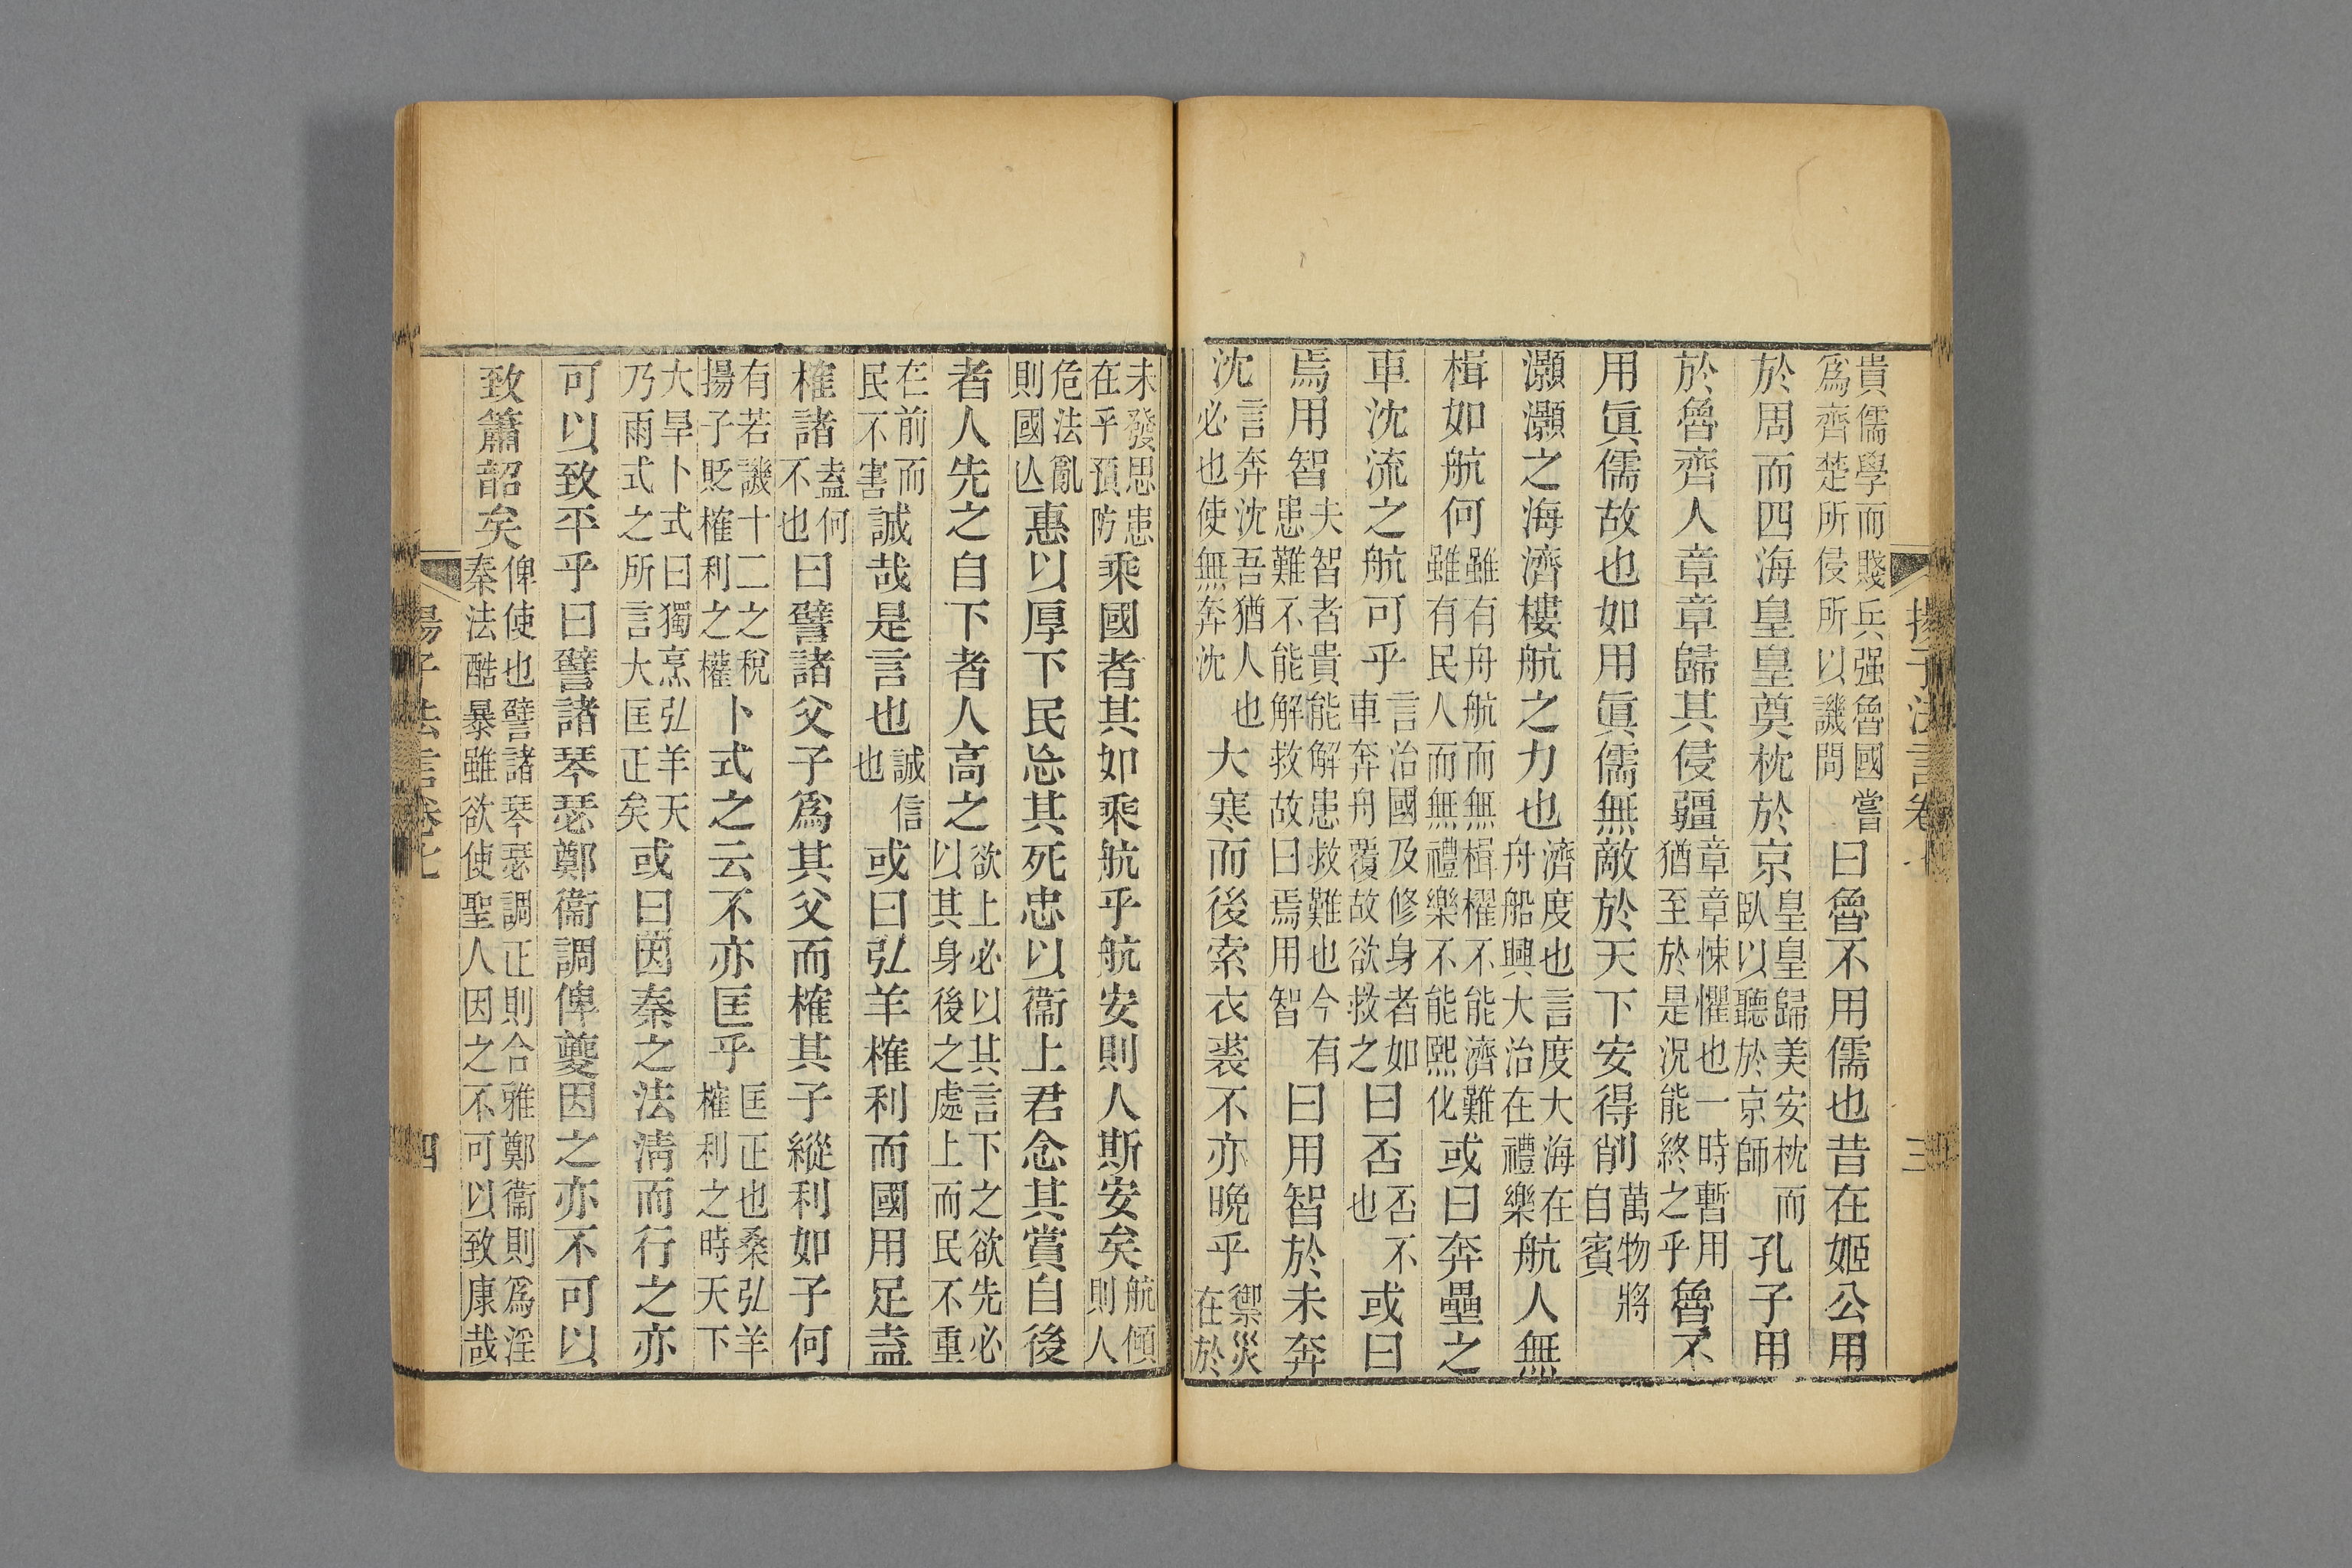 揚子法言卷七 三
貴儒學而賤兵强魯國嘗爲齊楚所侵所以譏問曰魯不用儒也昔在姬公用
於周而四海皇皇奠枕於京皇皇歸美安枕而臥以聽於京師孔子用
於魯齊人章章歸其侵疆章章悚懼也一時暫用猶至於是況能終之乎魯不
用眞儒故也如用眞儒無敵於天下安得削萬物將自賓
灝灝之海濟樓航之力也濟度也言度大海在舟船興大治在禮樂航人無
楫如航何雖有舟航而無楫櫂不能濟難雖有民人而無禮樂不能熙化或曰奔壘之
車沈流之航可乎言治國及修身者如車奔舟覆故欲救之曰否否不也或曰
焉用智夫智者貴能解患救難也今有患難不能解救故曰焉用智曰用智於未奔
沈言奔沈吾猶人也必也使無奔沈大寒而後索衣裘不亦晩乎禦災在於
未發思患在乎預防乘國者其如乘航乎航安則人斯安矣航傾則人
危法亂則國亾惠以厚下民忘其死忠以衞上君念其賞自後
者人先之自下者人高之欲上必以其言下之欲先必以其身後之處上而民不重
在前而民不害誠哉是言也誠信也或曰弘羊榷利而國用足盍
榷諸盍何不也曰譬諸父子爲其父而榷其子縱利如子何
有若譏十二之稅揚子貶榷利之權卜式之云不亦匡乎匡正也桑弘羊榷利之時天下
大旱卜式曰獨烹弘羊天乃雨式之所言大匡正矣或曰因秦之法淸而行之亦
可以致平乎曰譬諸琴瑟鄭衞調俾夔因之亦不可以
致簫韶矣俾使也譬諸琴瑟調正則合雅鄭衞則爲淫秦法酷暴雖欲使聖人因之不可以致康哉
揚子法言卷七 四